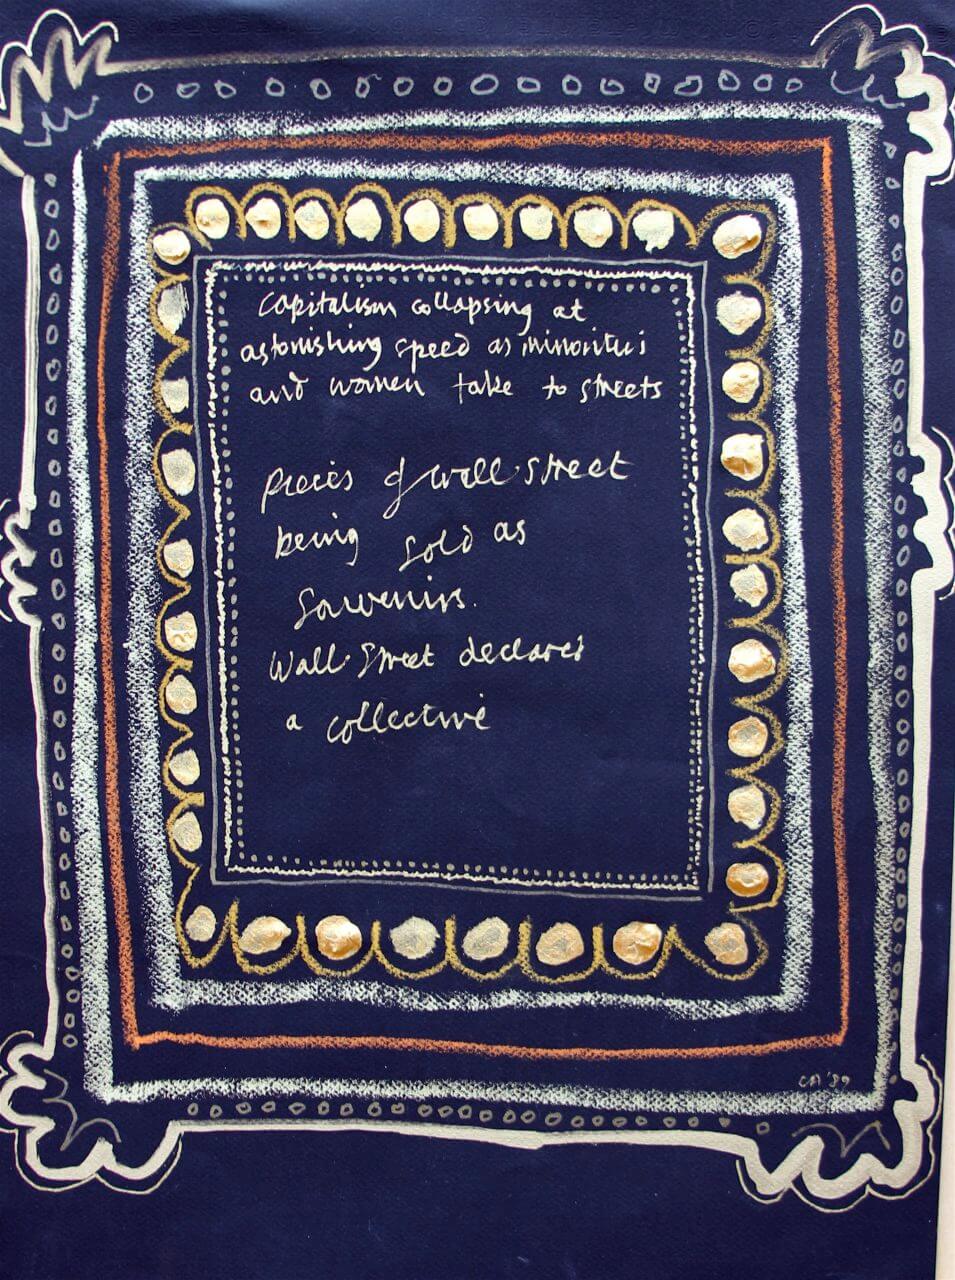 capitalism collapsing at
astonishing speed as minorities
and women take to streets
pieces of wall street
being sold as
souvenirs.
Wall Street declares
a collective
CA '89